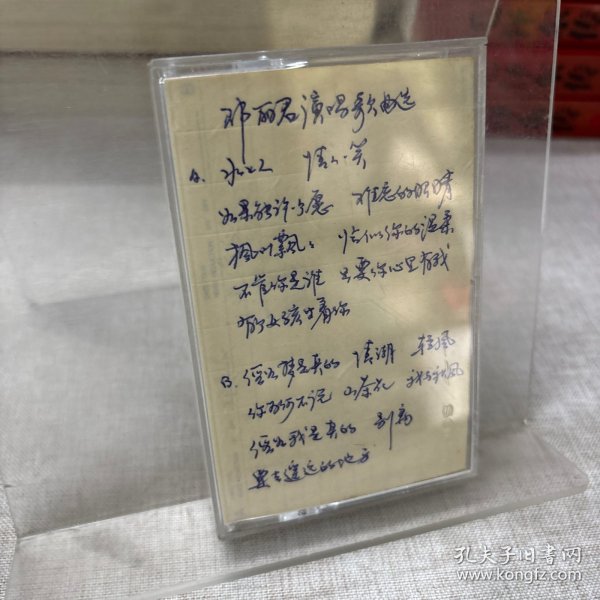 邓丽君演唱歌曲选
A. 水上人 情人一笑
如果能许一个愿 难忘的眼睛
枫叶飘飘 恰似你的温柔
不管你是谁 只要你心里有我
有个女孩等着你
B. 假如梦是真的 情湖 轻风
你为何不说 山茶花 我与秋风
假如我是真的 别离
要去遥远的地方
孔夫子旧书网
www.kongfz.com